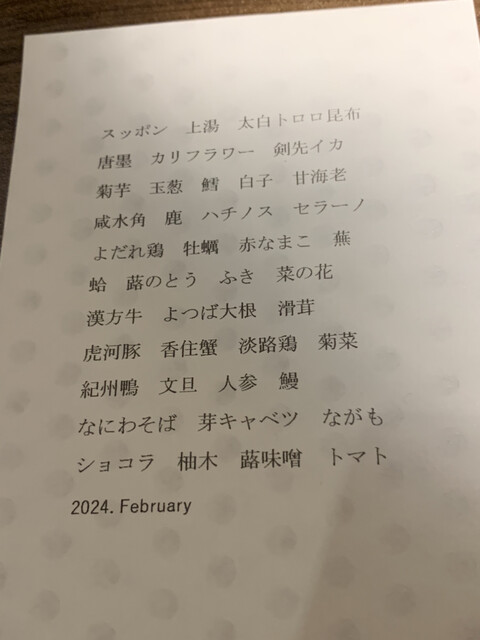 スッポン　上湯　太白トロロ昆布
唐墨　カリフラワー　剣先イカ
菊芋　玉葱　鱈　白子　甘海老
咸水角　鹿　ハチノス　セラーノ
よだれ鶏　牡蠣　赤なまこ　蕪
蛤　蕗のとう　ふき　菜の花
漢方牛　よつば大根　滑茸
虎河豚　香住蟹　淡路鶏　菊菜
紀州鴨　文旦　人参　鰻
なにわそば　芽キャベツ　ながも
ショコラ　柚木　蕗味噌　トマト
2024. February